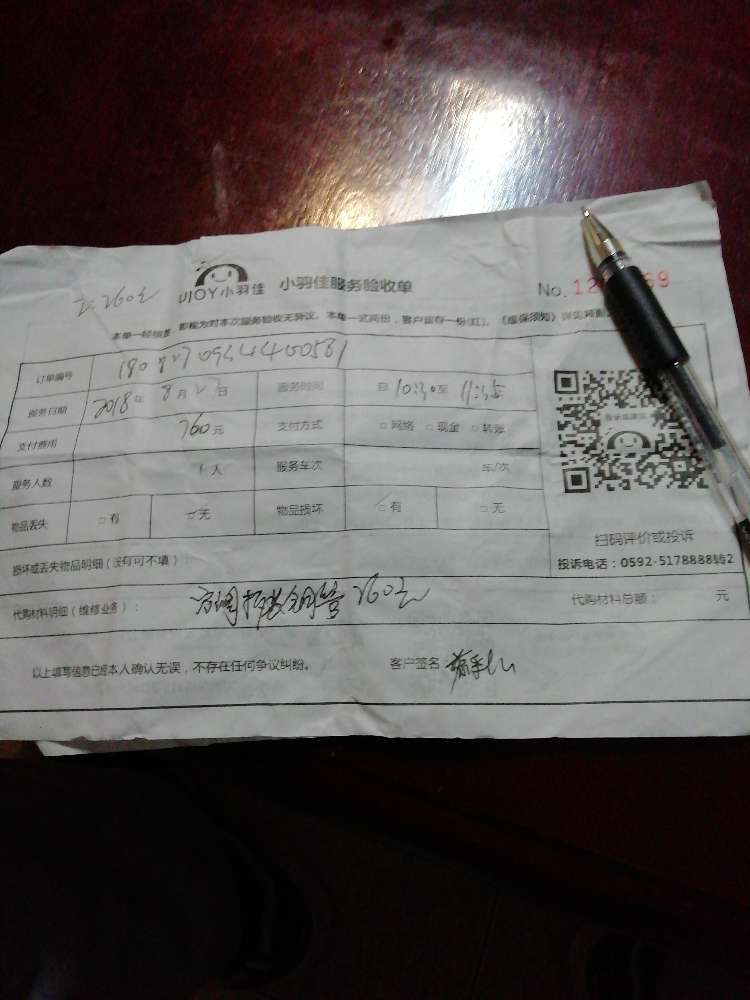 260元 UJOY小羽佳 小羽佳服务验收单 No.
本单一经核查，影能为对本次服务验收无异议。本单一式两份，客户留存一份(红)。《维保须知》详见背面
订单编号
服务日期 2018年8月27日 服务时间 自10:30至11:35
支付费用 260元 支付方式 □网络 □现金 □转账
服务人数 1人 服务车次 车/次
物品丢失 □有 ☑无 物品损坏 □有 □无
扫码评价或投诉
损坏或丢失物品明细（没有可不填）： 投诉电话：0592-5178888转2
代购材料明细（维修业务）： 空调拆装铜管260元 代购材料总额： 元
以上填写信息已经本人确认无误，不存在任何争议纠纷。 客户签名